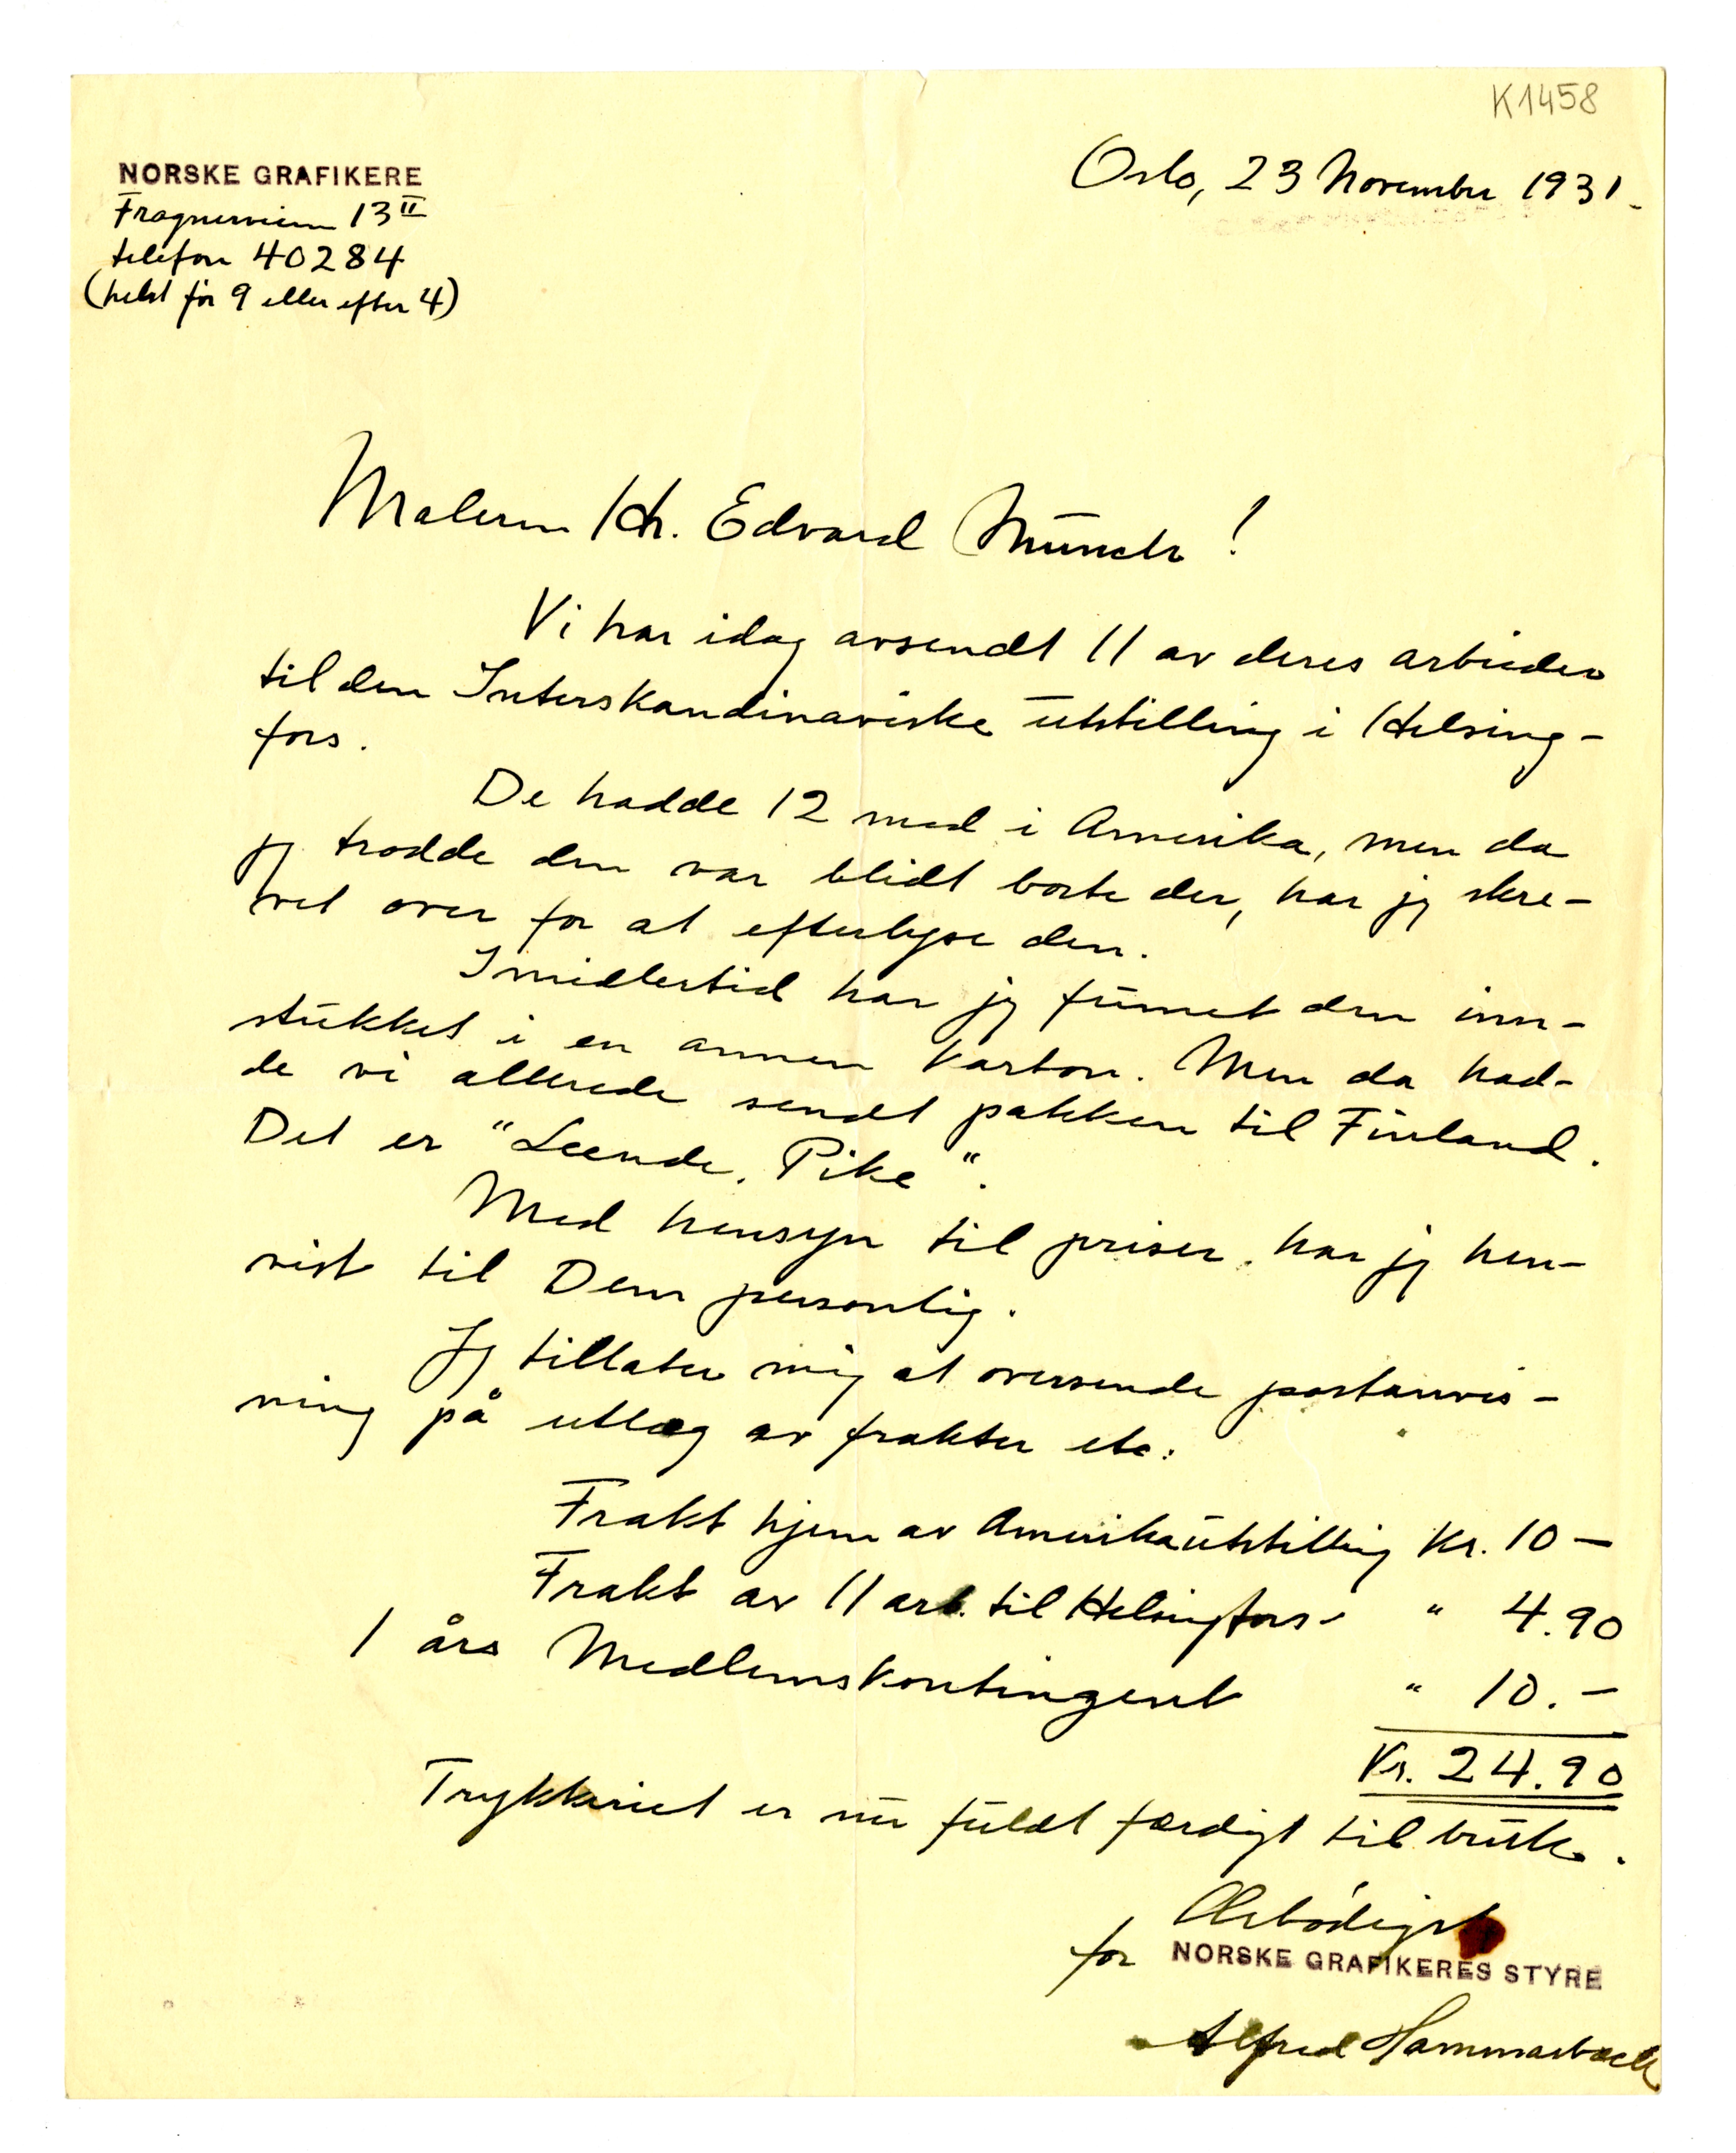 K1458
NORSKE GRAFIKERE
Frognerveien 13 II
telefon 40284
(helst før 9 eller efter 4)
Oslo, 23 November 1931.
Maleren Hr. Edvard Munch!
Vi har idag avsendt 11 av deres arbeider
til den Interskandinaviske utstilling i Helsing-
fors.
De hadde 12 med i Amerika, men da
jeg trodde den var blidt borte der, har jeg skre-
vet over for at efterlyse den.
Imidlertid har jeg funnet den inn-
stukket i en annen karton. Men da had-
de vi allerede sendt pakken til Finland.
Det er "Leende Pike".
Med hensyn til priser har jeg hen-
vist til Dem personlig.
Jeg tillater mig at oversende postanvis-
ning på utlæg av frakter etc:
Frakt hjem av Amerikautstilling Kr. 10 —
Frakt av 11 arb. til Helsingfors - " 4.90
1 års Medlemskontingent " 10.—
Kr. 24.90
Trykkeriet er nu fuldt færdigt til bruk.
Ærbödigst
for NORSKE GRAFIKERES STYRE
Alfred Hammarbäck